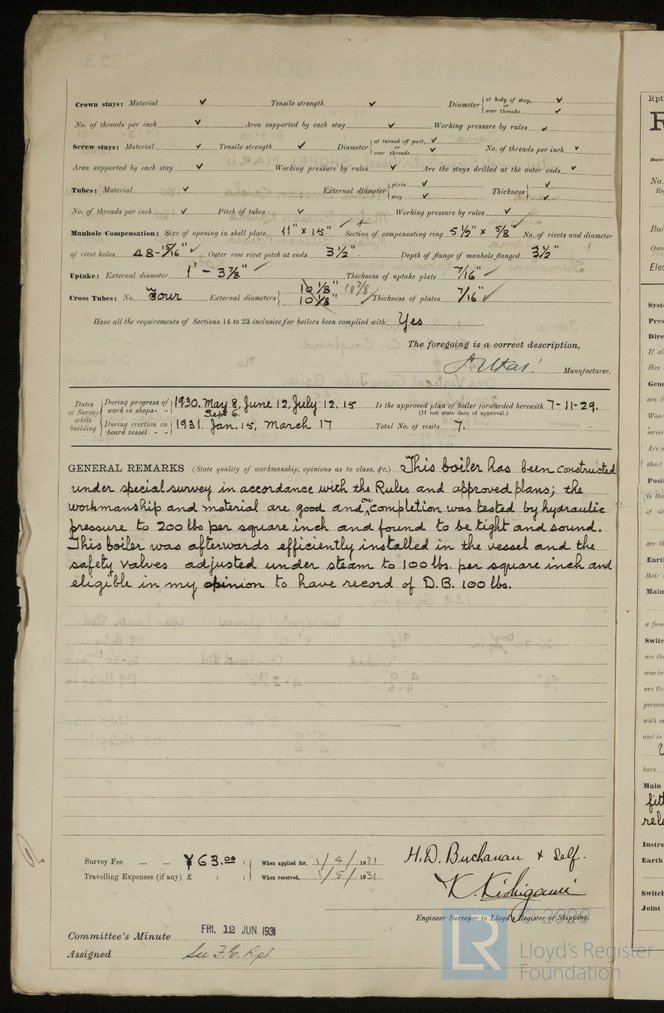 Crown stays: Material ✓ Tensile strength ✓ Diameter { at body of stay, ✓ or over threads ✓
No. of threads per inch ✓ Area supported by each stay ✓ Working pressure by rules ✓
Screw stays: Material ✓ Tensile strength ✓ Diameter { at turned off part, ✓ or over threads ✓ No. of threads per inch ✓
Area supported by each stay ✓ Working pressure by rules ✓ Are the stays drilled at the outer ends ✓
Tubes: Material ✓ External diameter { plain ✓ stay ✓ Thickness { ✓ ✓
No. of threads per inch ✓ Pitch of tubes ✓ Working pressure by rules ✓
Manhole Compensation: Size of opening in shell plate 11" x 15" ✓ Section of compensating ring 5½" x ⅝" No. of rivets and diameter
of rivet holes 48-15/16" ✓ Outer row rivet pitch at ends 3½" Depth of flange if manhole flanged 3½"
Uptake: External diameter 1' - 3⅞" ✓ Thickness of uptake plate 7/16" ✓
Cross Tubes: No. Four External diameters { 10⅛" 10⅞ 10⅛" Thickness of plates 7/16" ✓
Have all the requirements of Sections 14 to 23 inclusive for boilers been complied with Yes
The foregoing is a correct description,
Manufacturer.
Dates of Survey while building { During progress of work in shops - - } 1930. May 8, June 12, July 12, 15 Sept 6. Is the approved plan of boiler forwarded herewith 7-11-29.
(If not state date of approval.)
{ During erection on board vessel - - } 1931. Jan. 15, March 17 Total No. of visits 7.
GENERAL REMARKS (State quality of workmanship, opinions as to class, &c.) This boiler has been constructed
under special survey in accordance with the Rules and approved plans; the
workmanship and material are good and on completion was tested by hydraulic
pressure to 200 lbs per square inch and found to be tight and sound.
This boiler was afterwards efficiently installed in the vessel and the
safety valves adjusted under steam to 100 lbs. per square inch and
eligible in my opinion to have record of D.B. 100 lbs.
Survey Fee ... ... ¥63.00 : When applied for, 1/4/1931 H.D. Buchanan & Self.
Travelling Expenses (if any) £ : : When received, 1/5/1931 K. Kishigami
Engineer Surveyor to Lloyd's Register of Shipping.
Committee's Minute FRI. 12 JUN 1931
Assigned See F.E. Rpt.
© 2020
LR Lloyd's Register
Foundation